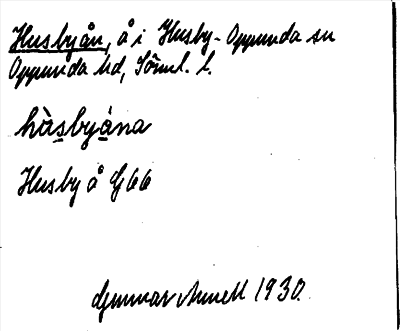 Husbyån, å i Husby-Oppunda sn
Oppunda hd, Söml. l.
hùsbyána
Husby å G66
Gunnar Annell 1930.